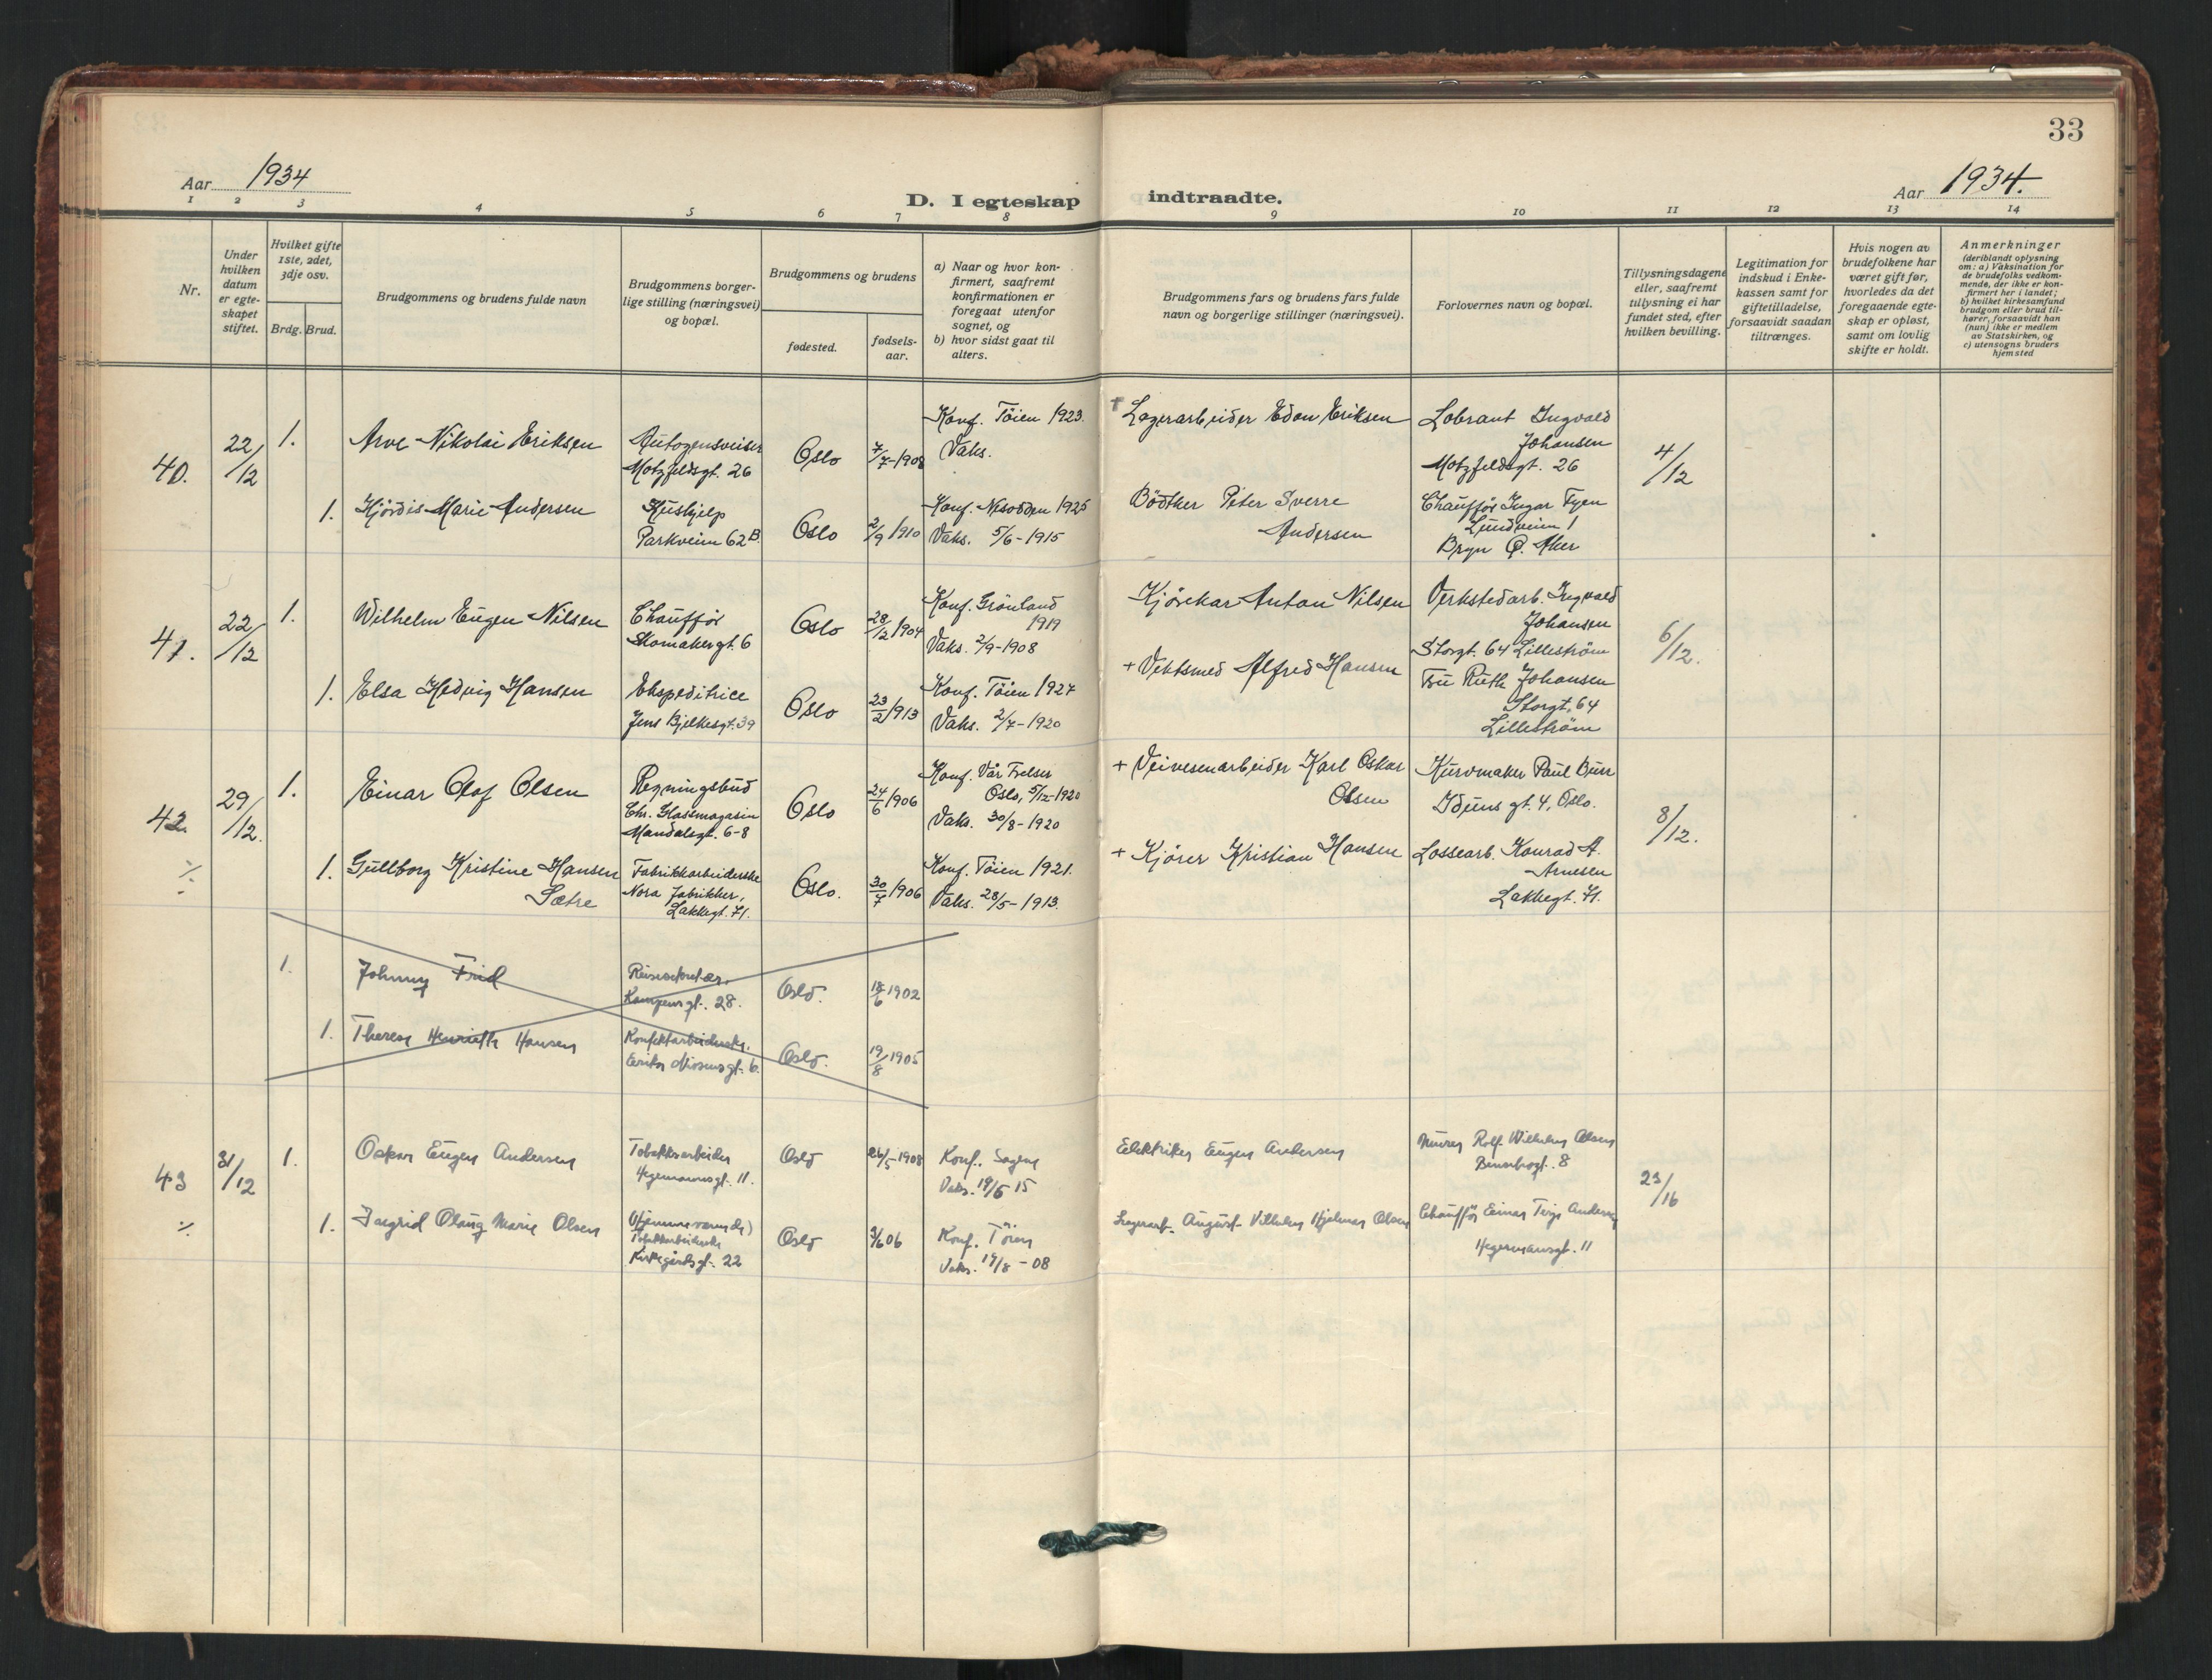 33
Aar 1934
D. I egteskap indtraadte.
Aar 1934.
1 2 3 4 5 6 7 8 9 10 11 12 13 14
Nr.
Under
hvilken
datum
er egte-
skapet
stiftet.
Hvilket gifte
1ste, 2det,
3dje osv.
Brdg. Brud.
Brudgommens og brudens fulde navn
Brudgommens borger-
lige stilling (næringsvei)
og bopæl.
Brudgommens og brudens
fødested.
fødsels-
aar.
a) Naar og hvor kon-
firmert, saafremt
konfirmationen er
foregaat utenfor
sognet, og
b) hvor sidst gaat til
alters.
Brudgommens fars og brudens fars fulde
navn og borgerlige stillinger (næringsvei).
Forlovernes navn og bopæl.
Tillysningsdagene
eller, saafremt
tillysning ei har
fundet sted, efter
hvilken bevilling.
Legitimation for
indskud i Enke-
kassen samt for
giftetilladelse,
forsaavidt saadan
tiltrænges.
Hvis nogen av
brudefolkene har
været gift før,
hvorledes da det
foregaaende egte-
skap er opløst,
samt om lovlig
skifte er holdt.
Anmerkninger
(deriblandt oplysning
om: a) Vaksination for
de brudefolks vedkom-
mende, der ikke er kon-
firmert her i landet;
b) hvilket kirkesamfund
brudgom eller brud til-
hører, forsaavidt han
(hun) ikke er medlem
av Statskirken, og
c) utensogns bruders
hjemsted
40.
22/12
1.
Arve Nikolai Eriksen
Autogensveiser
Motzfeldsgt. 26
Oslo
7/7-1908
Konf. Töien 1923.
Vaks.
† Lagerarbeider Edon Eriksen
Lobrant Ingvald
Johansen
Motzfeldsgt. 26
4/12
1.
Hjördis Marie Andersen
Hushjelp
Parkveien 62 B.
Oslo
2/9 1910
Konf. Nesodden 1925
Vaks. 5/6-1915
Bödtker Peter Sverre
Andersen
Chauffør Ingar Fyen
Lundveien 1
Bryn Ö. Aker
41.
22/12
1.
Wilhelm Eugen Nilsen
Chauffør
Skomakergt. 6
Oslo
28/12 1904
Konf. Grönland
1919
Vaks. 2/9-1908
Kjörekar Anton Nilsen
Verkstedarb. Ingvald
Johansen
Storgt. 64 Lilleström
6/12.
1.
Elsa Hedvig Hansen
Ekspeditrice
Jens Bjelkesgt. 39
Oslo
23/2 1913
Konf. Töien 1927
Vaks. 2/7-1920
+ Vektsmed Alfred Hansen
Fru Ruth Johansen
Storgt. 64
Lilleström
42.
29/12.
1.
Einar Olaf Olsen
Regningsbud
Chr. Glassmagasin
Mandalsgt. 6-8
Oslo
24/6 1906
Konf. Vår Frelser
Oslo, 5/12-1920
Vaks. 30/8-1920
+ Veivesenarbeider Karl Oskar
Olsen
Kurvmaker Paul Burr
Iduns gt. 4, Oslo.
8/12.
÷
1.
Gullborg Kristine Hansen
Sætre
Fabrikkarbeiderske
Nora fabrikker,
Lakkegt. 71.
Oslo.
30/7 1906
Konf. Töien 1921.
Vaks. 28/5-1913.
+ Kjörer Kristian Hansen
Lossearb. Konrad A.
Arnesen
Lakkegt. 71.
1.
Johnny Frid
Reisesekretær.
Kampensgt. 28.
Oslo.
18/6 1902
1.
Therese Henriette Hansen
Konfektarbeiderske.
Oslo.
19/8 1905
43
31/12
1.
Oskar Eugen Andersen
Tobakksarbeider
Hegermannsgt. 11.
Oslo
26/5-1908
Konf. Sagene
Vaks. 19/6 15
Elektriker Eugen Andersen
Murer Rolf Wilhelm Olsen
23/16
÷
1.
Ingrid Olaug Marie Olsen
(Hjemmeværende)
Tobakkarbeiderske
Kirkegårdsgt. 22
Oslo
3/6 06
Konf. Töien
Vaks. 19/8-08
Lagerarb. August Vilhelm Hjalmar Olsen
Chauffør Einar Terje Andersen
Hegermansgt. 11